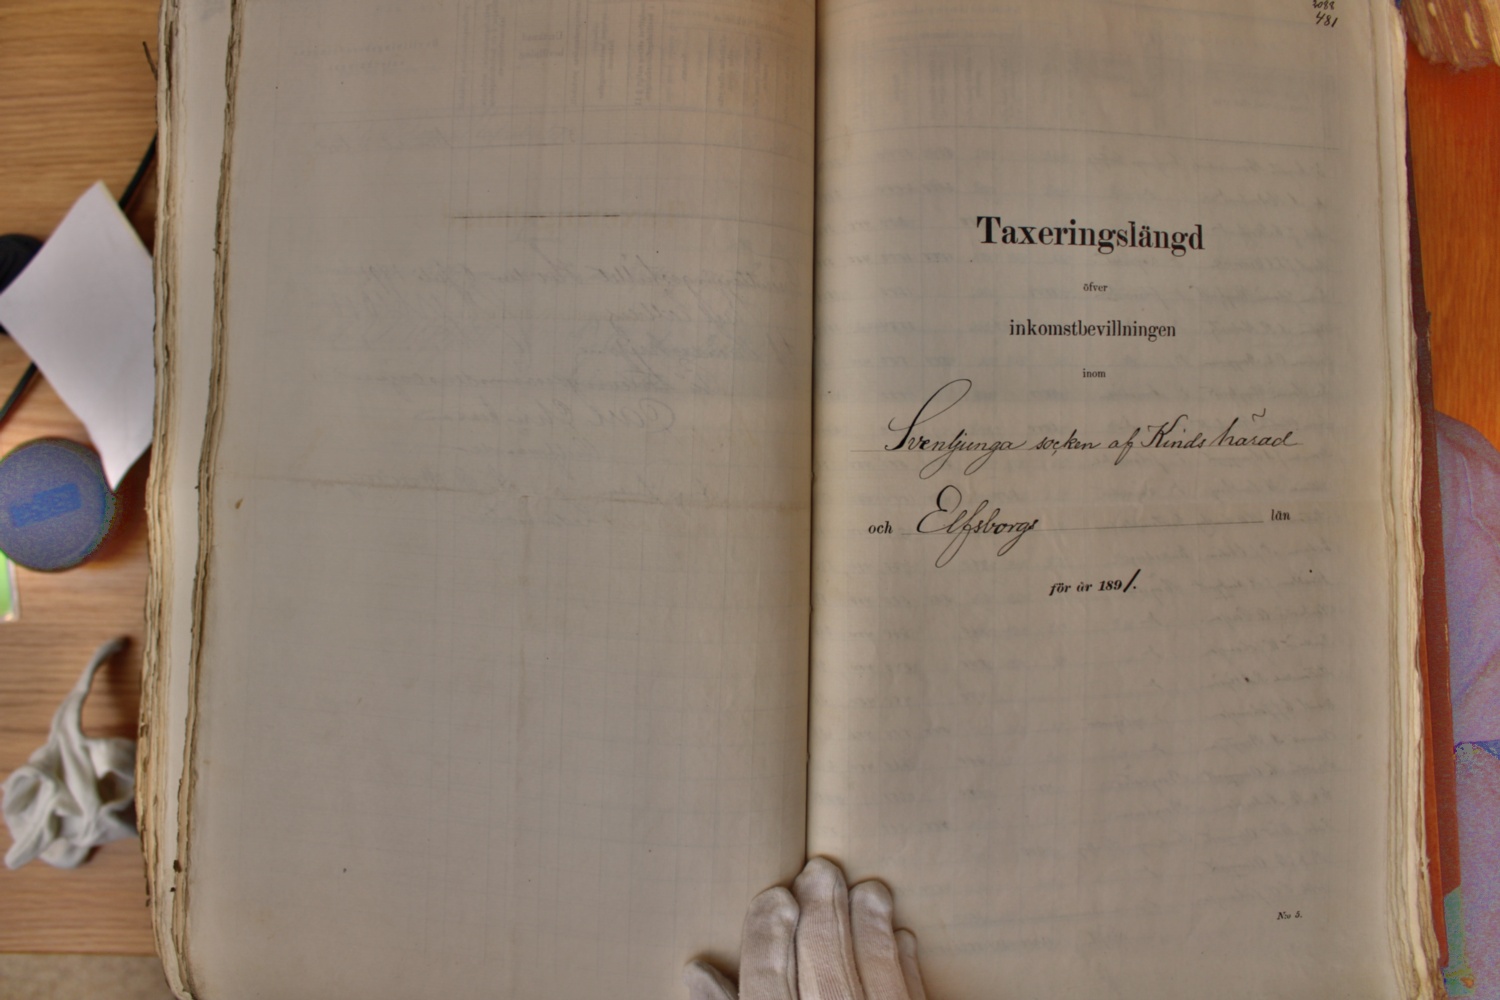 481
Taxeringslängd
öfver
inkomstbevillningen
inom
Svenljunga socken af Kinds härad
och Elfsborgs län
för år 1891.
N:o 5.